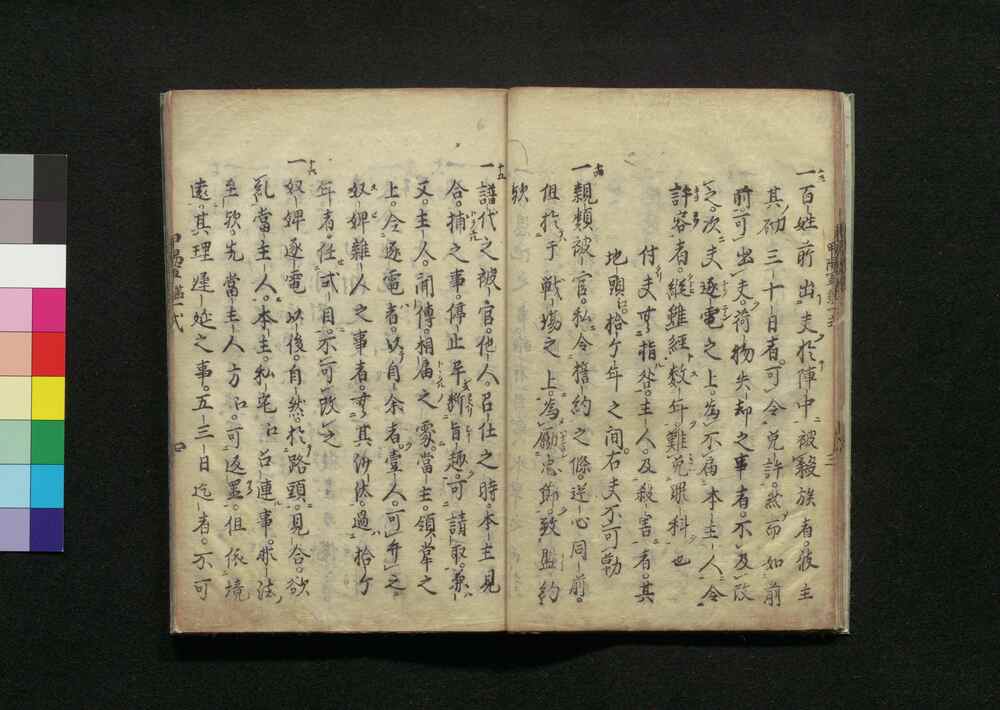 一百姓前出夫於陣中被殺族者。彼主
其砌三十日者。可令免許。然而如前
前可出夫。荷物失却之事者。不及改
之。次夫逐電之上。為不届本主人令
許容者。縦雖経数年難免罪科也
付夫無指咎。主人。及殺害者。其
地頭江。拾ケ年之間。右夫不可勤
一親類被官。私令誓約之條。逆心同前。
但於于戦場之上。為励忠節。致盟約
歟
一譜代之被官。他人召仕之時。本主見
合。捕之事。停止畢。断旨趣。可請取。兼
又。主人。聞傳。相届之處。當主。領掌之
上。令逐電者。以自余者。壹人。可弁之
奴婢雜人之事者。無其沙汰。過拾ケ
年者。任式目。不可改之
一奴婢逐電以後。自然於路頭。見合。欲
糺當主人。本主。私宅江召連事。非法
至歟。先當主人方江。可返置。但依境
遠。其理遅延之事。五三日迄者。不可